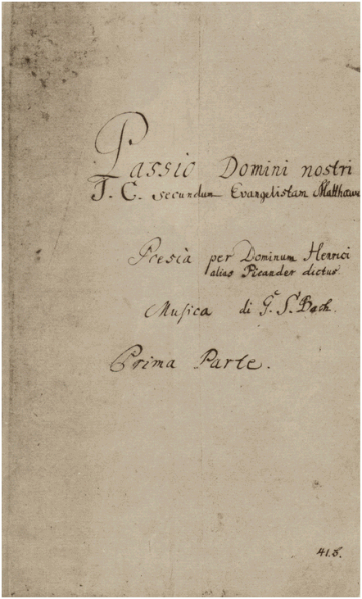 Passio Domini nostri
J. C. secundum Evangelistam Matthaeum
Poesia per Dominum Henrici
alias Picander dictus
Musica di G. S. Bach.
Prima Parte.
41.5.